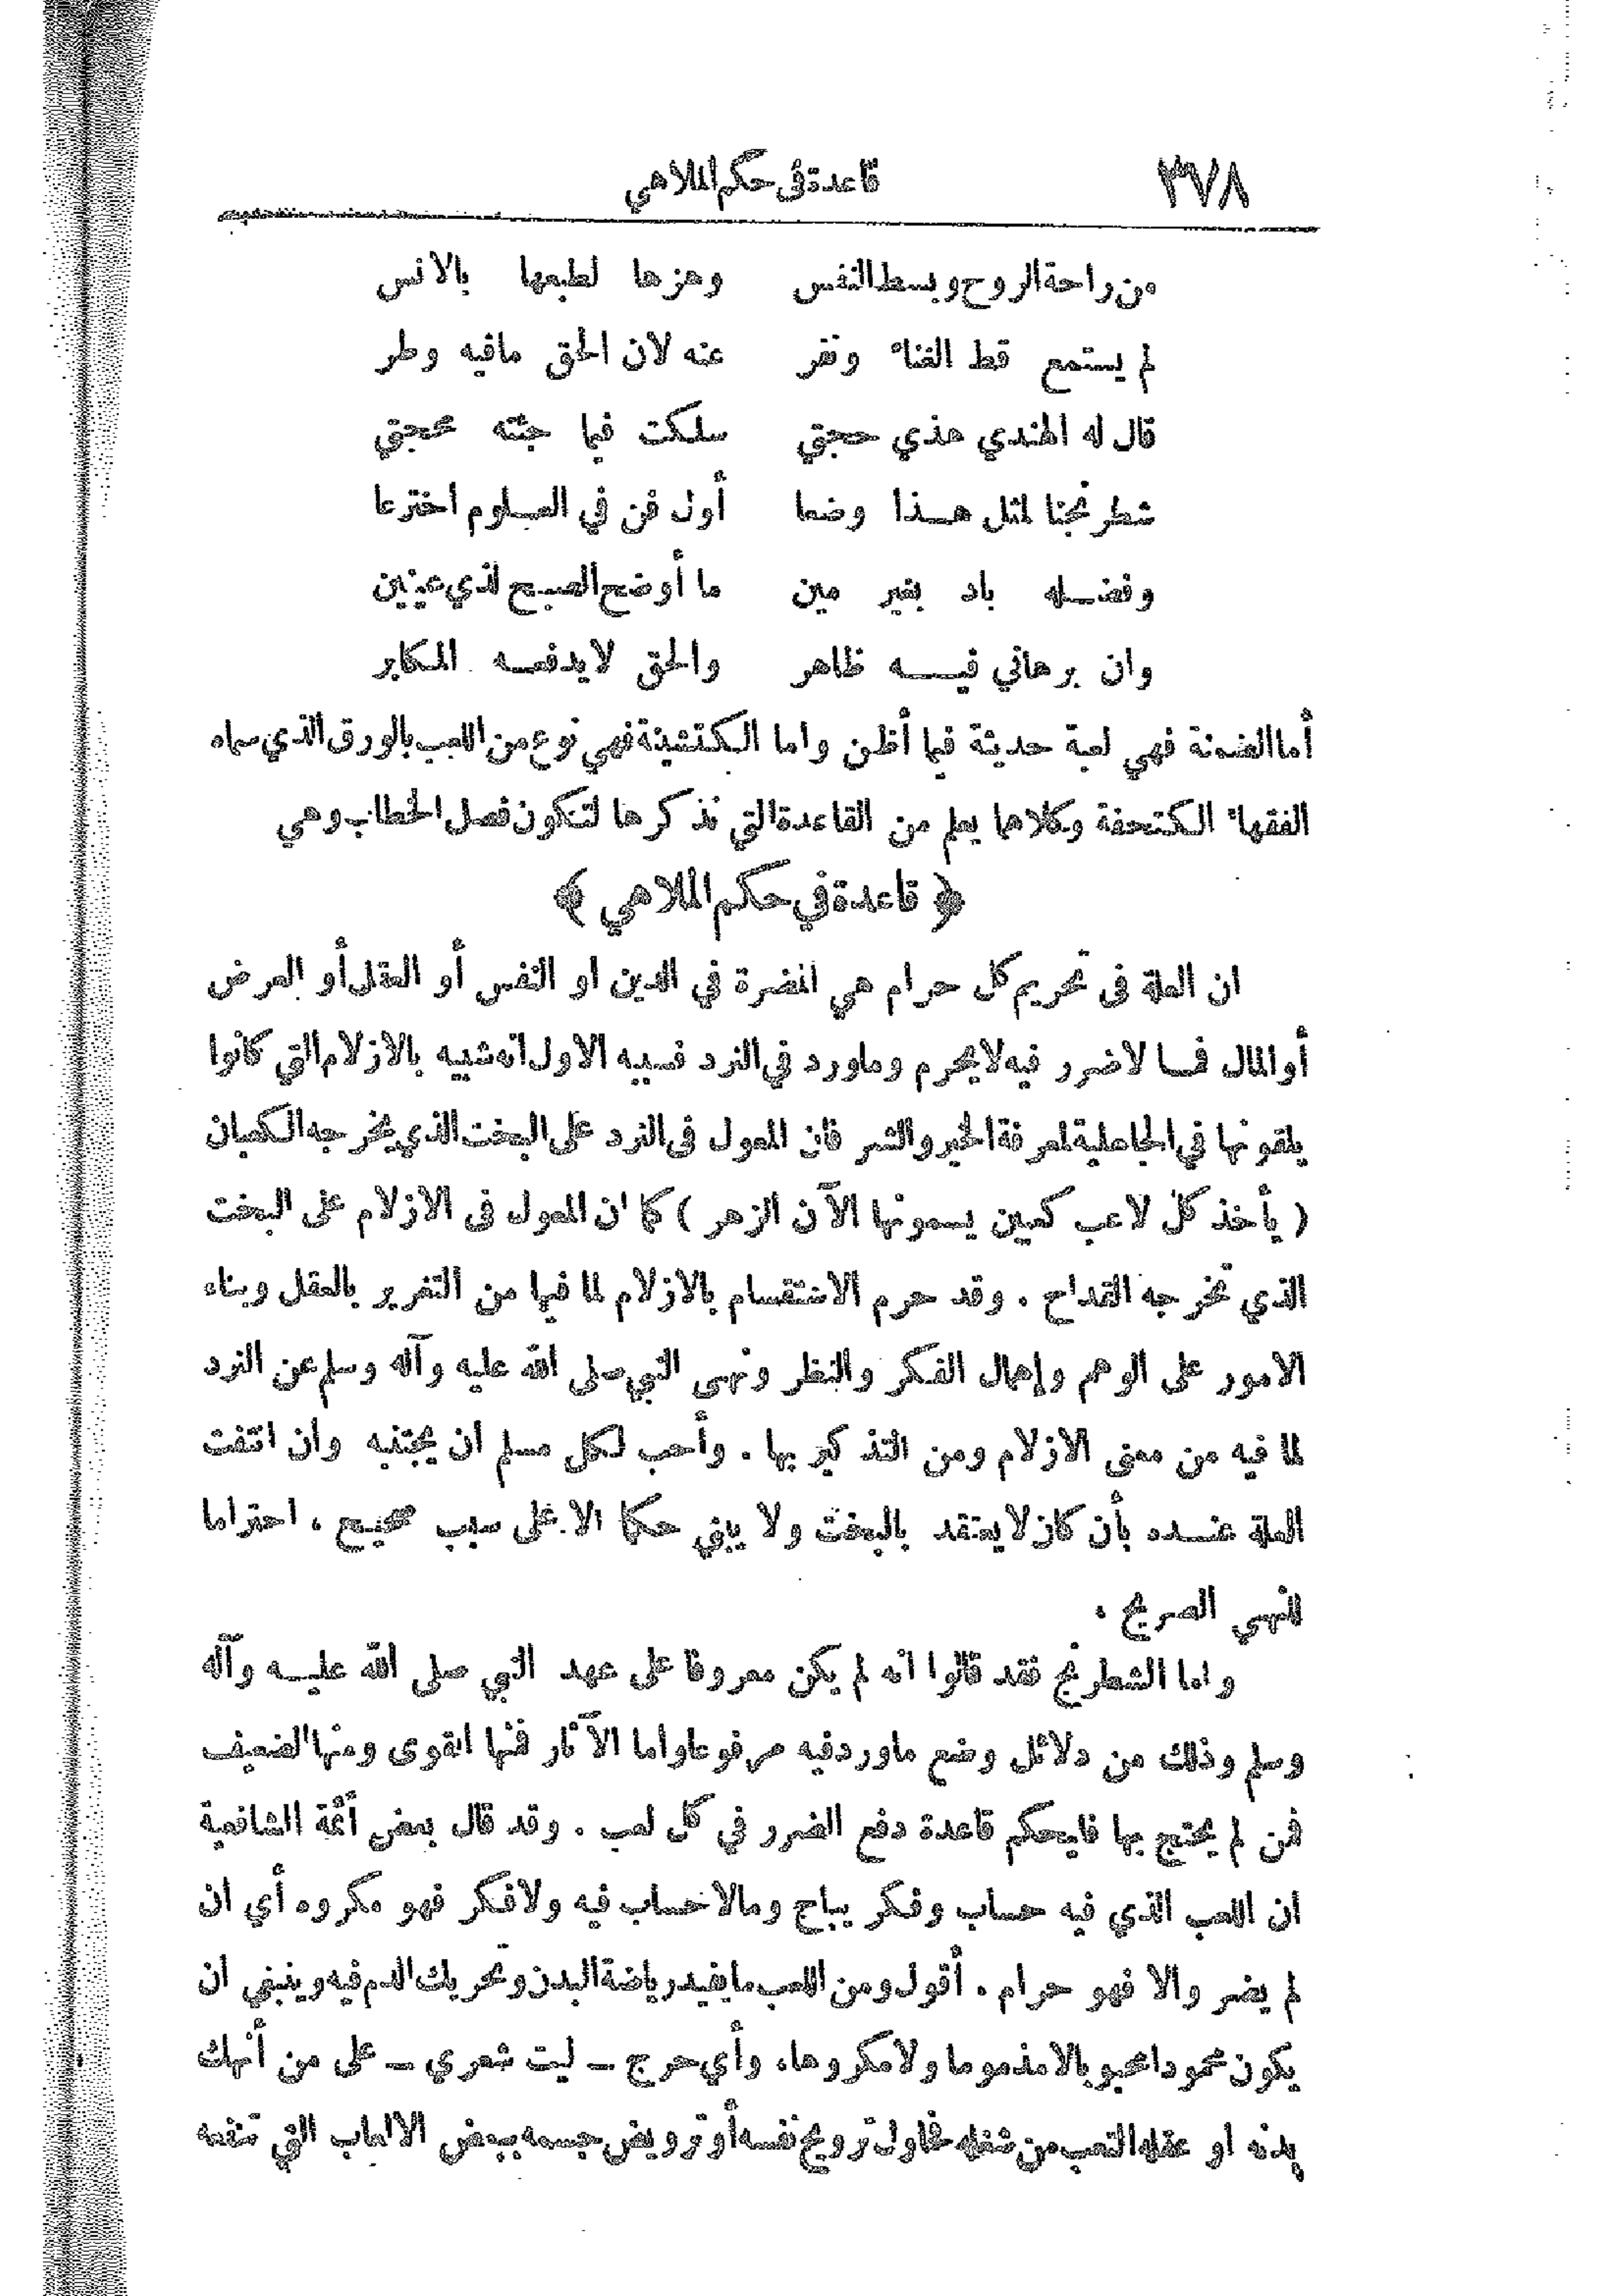 ٣٧٨ قاعدة فى حكم الملاهي
من راحة الروح وبسط النفس وهزها لطبعها بالانس
لم يستمع قط الغناء ونفر عنه لان الحق مافيه وطر
قال له الهندي هذي حجتي سلكت فيما جئته محجتي
شطرنجنا لمثل هذا وضعا أول فن في العلوم اخترعا
وفضله باد بغير مين ما أوضح الصبح لذي عينين
وان برهاني فيه ظاهر والحق لا يدفعه المكابر
أما الضمنة فهي لعبة حديثة فيما أظن واما الكتشينة فهي نوع من اللعب بالورق الذي سماه
الفقهاء الكتحفة وكلاهما يعلم من القاعدة التي نذكرها لتكون فصل الخطاب وهي
﴿ قاعدة في حكم الملاهي ﴾
ان العلة فى تحريم كل حرام هي المضرة في الدين او النفس أو العقل أو العرض
أو المال فما لا ضرر فيه لا يحرم وماورد في النرد فسببه الاول انه شبيه بالازلام التي كانوا
يلقونها في الجاهلية لمعرفة الخير والشر فان المعول فى النرد على البخت الذي يخرجه الكعبان
( يأخذ كل لاعب كعبين يسمونها الآن الزهر ) كما ان المعول فى الازلام على البخت
الذي تخرجه القداح . وقد حرم الاستقسام بالازلام لما فيها من التغرير بالعقل وبناء
الامور على الوهم وإهمال الفكر والنظر ونهى النبي صلى الله عليه وآله وسلم عن النرد
لما فيه من معنى الازلام ومن التذكير بها . وأحب لكل مسلم ان يجتنبه وان انتفت
العلة عنده بأن كان لا يعتقد بالبخت ولا يبني حكما الا على سبب صحيح ، احتراما
للنهي الصريح .
واما الشطرنج فقد قالوا انه لم يكن معروفا على عهد النبي صلى الله عليه وآله
وسلم وذلك من دلائل وضع ماورد فيه مرفوعا واما الآثار فمنها القوى ومنها الضعيف
فمن لم يحتج بها فليحكم قاعدة دفع الضرر في كل لعب . وقد قال بعض أئمة الشافعية
ان اللعب الذي فيه حساب وفكر يباح ومالا حساب فيه ولا فكر فهو مكروه أي ان
لم يضر والا فهو حرام . أقول ومن اللعب ما يفيد رياضة البدن وتحريك الدم فيه وينبغي ان
يكون محمودا محبوبا لا مذموما ولا مكروها، وأي حرج ــ ليت شعري ــ على من أنهك
بدنه او عقله التعب من شغله فحاول ترويح نفسه أو ترويض جسمه ببعض الالعاب التي تنفعه